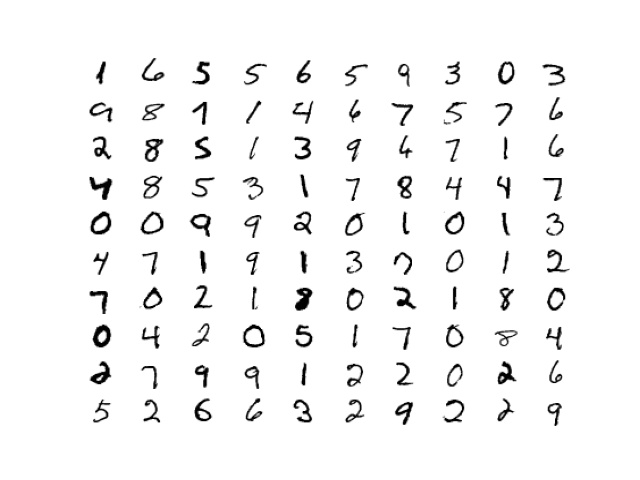 1 6 5 5 6 5 9 3 0 3
9 8 1 1 4 6 7 5 7 6
2 8 5 1 3 9 6 7 1 6
4 8 5 3 1 7 8 4 4 7
0 0 9 9 2 0 1 0 1 3
4 7 1 9 1 3 7 0 1 2
7 0 2 1 8 0 2 1 8 0
0 4 2 0 5 1 7 0 8 4
2 7 9 9 1 2 2 0 2 6
5 2 6 6 3 2 9 2 2 9